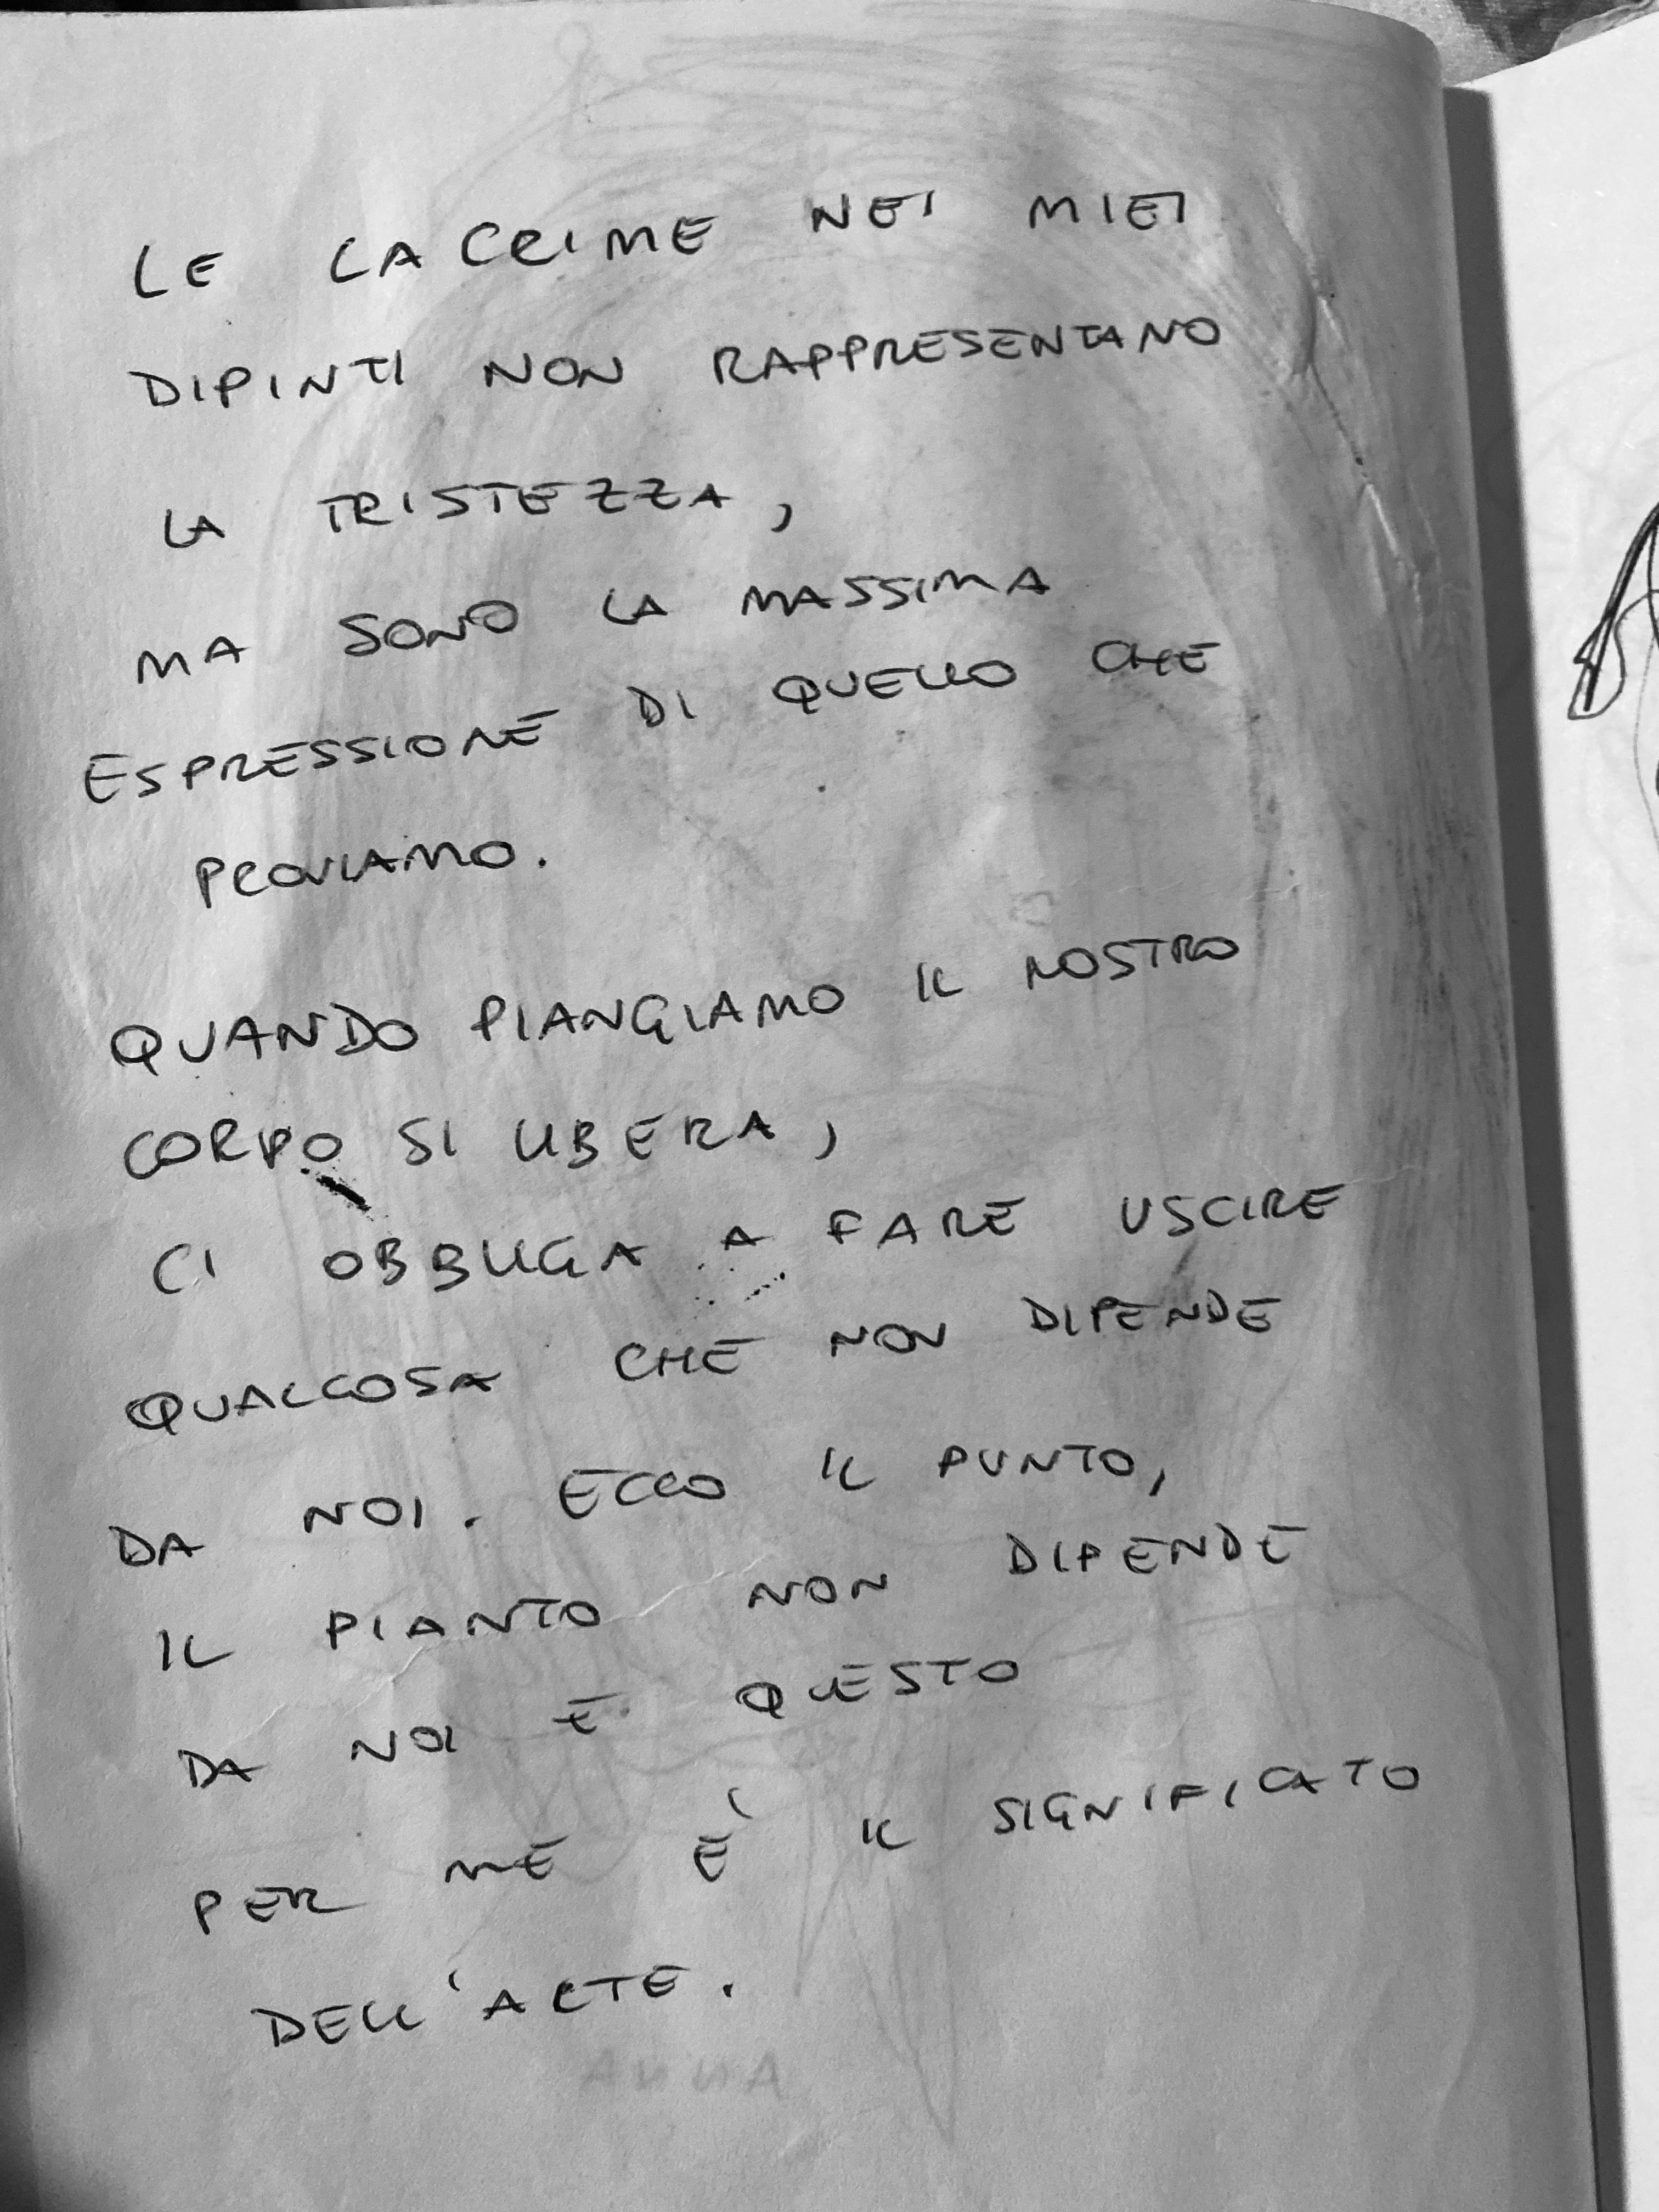 LE LACRIME NEI MIEI
DIPINTI NON RAPPRESENTANO
LA TRISTEZZA,
MA SONO LA MASSIMA
ESPRESSIONE DI QUELLO CHE
PROVIAMO.
QUANDO PIANGIAMO IL NOSTRO
CORPO SI LIBERA,
CI OBBLIGA A FARE USCIRE
QUALCOSA CHE NON DIPENDE
DA NOI. ECCO IL PUNTO,
IL PIANTO NON DIPENDE
DA NOI E QUESTO
PER ME È IL SIGNIFICATO
DELL'ARTE.
ANNA